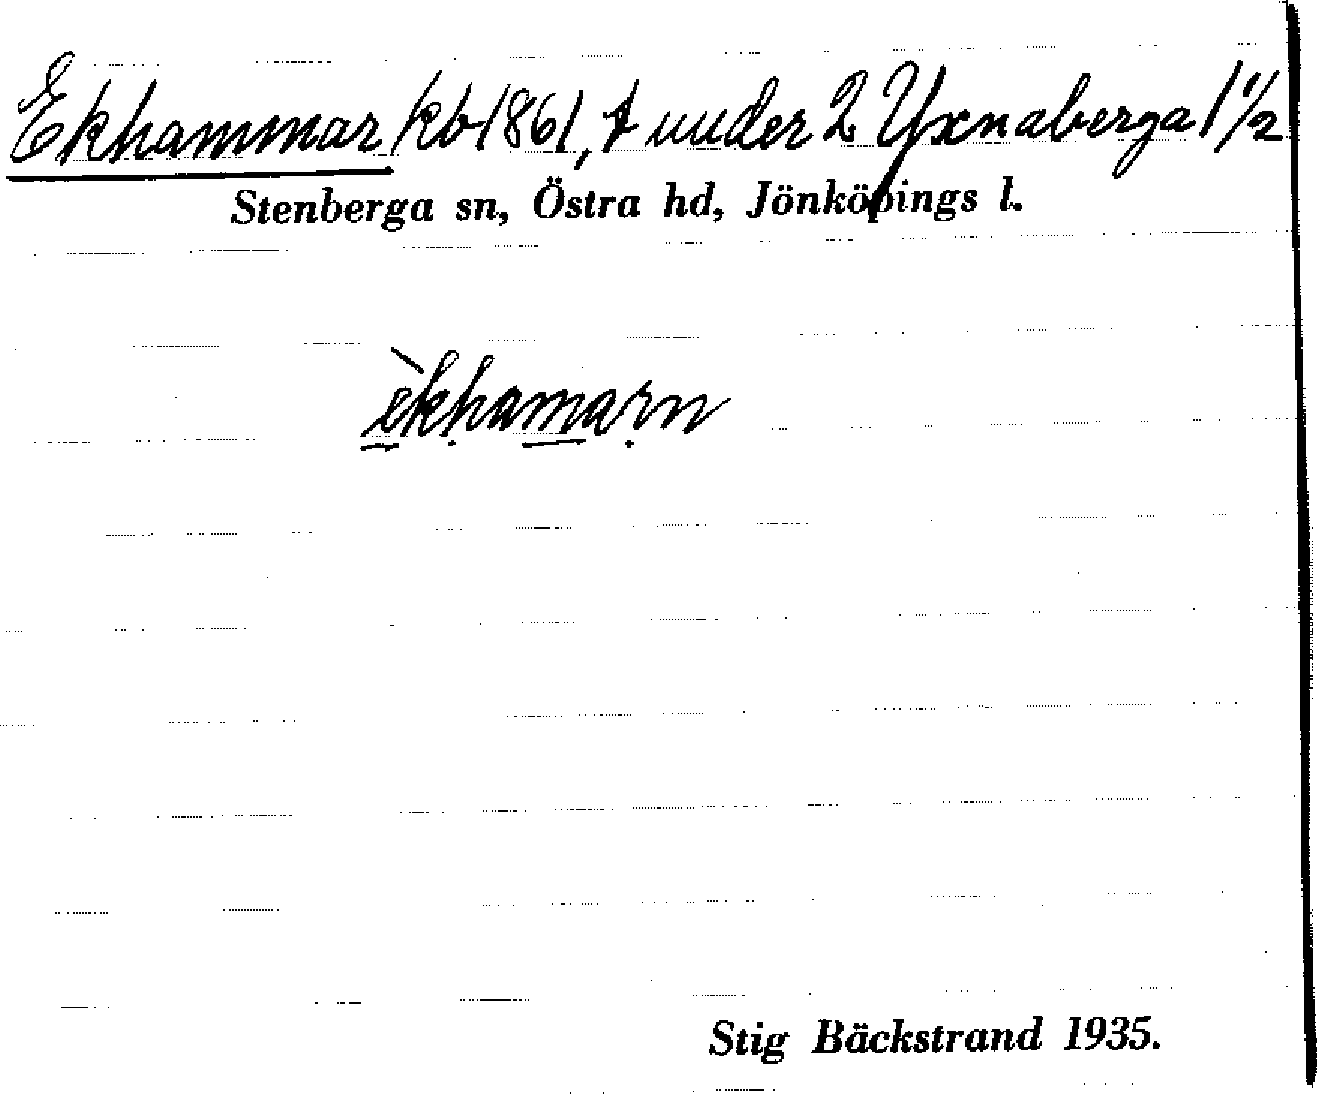 Ekhammar /kb 1861, t under 2 Yxnaberga 1 1/2
Stenberga sn, Östra hd, Jönköpings l.
èkhamarn
Stig Bäckstrand 1935.